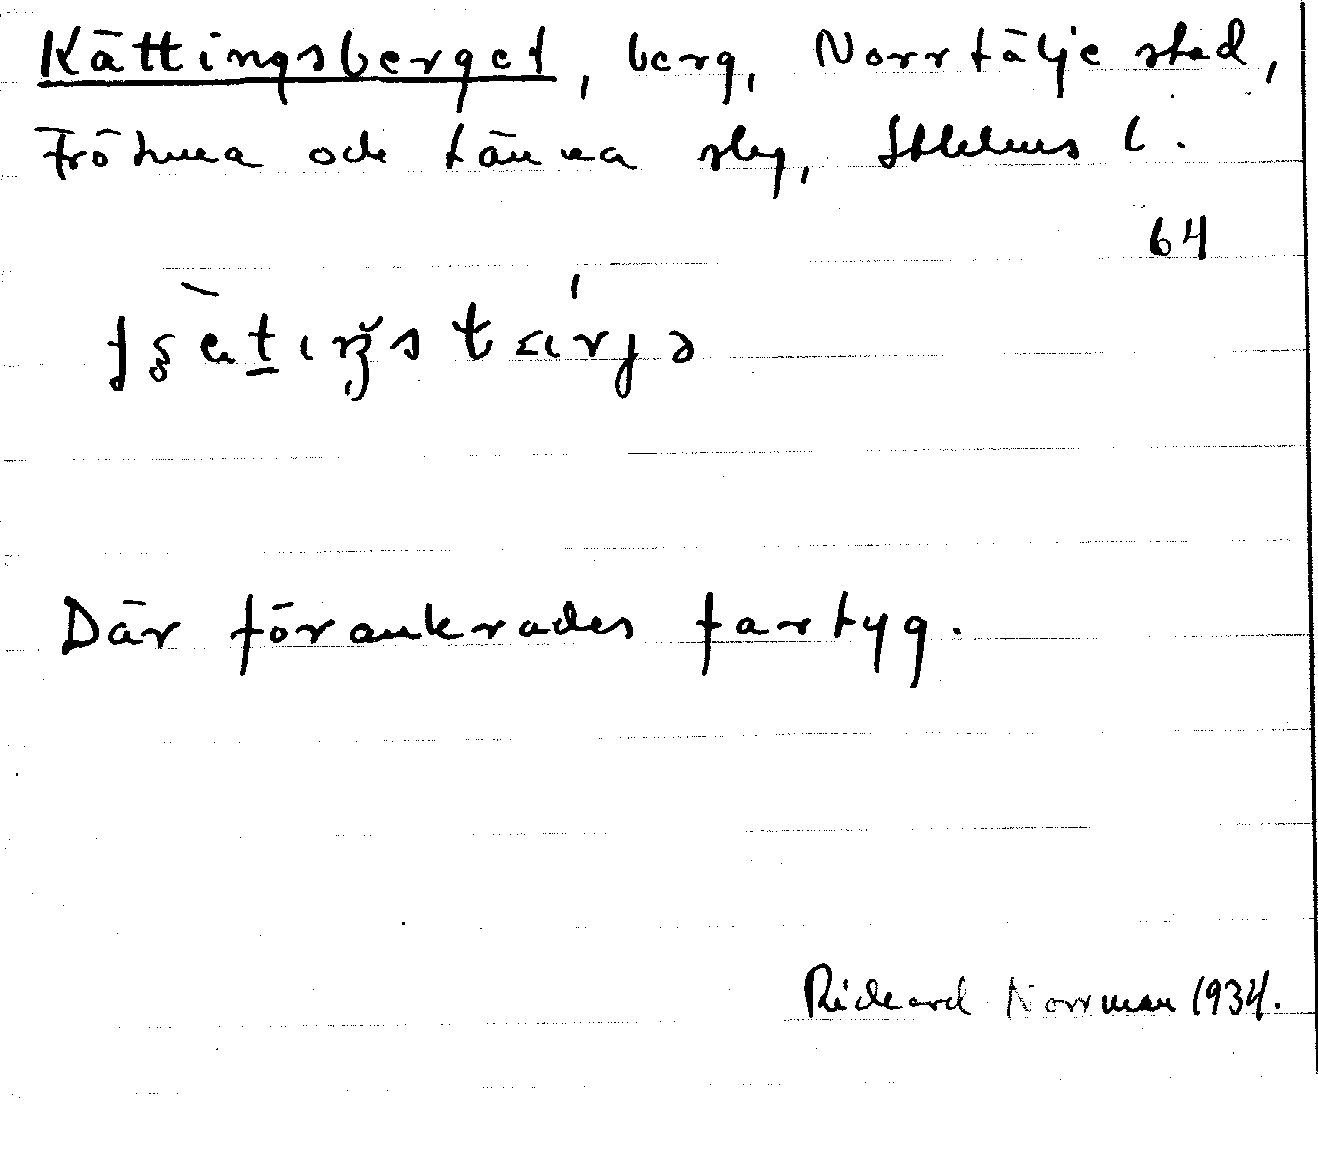 Kättingsberget, berg, Norrtälje stad,
Frötuna och Länna slg, Sthlms l.
64
Där förankrades fartyg.
Rickard Norrman 1934.